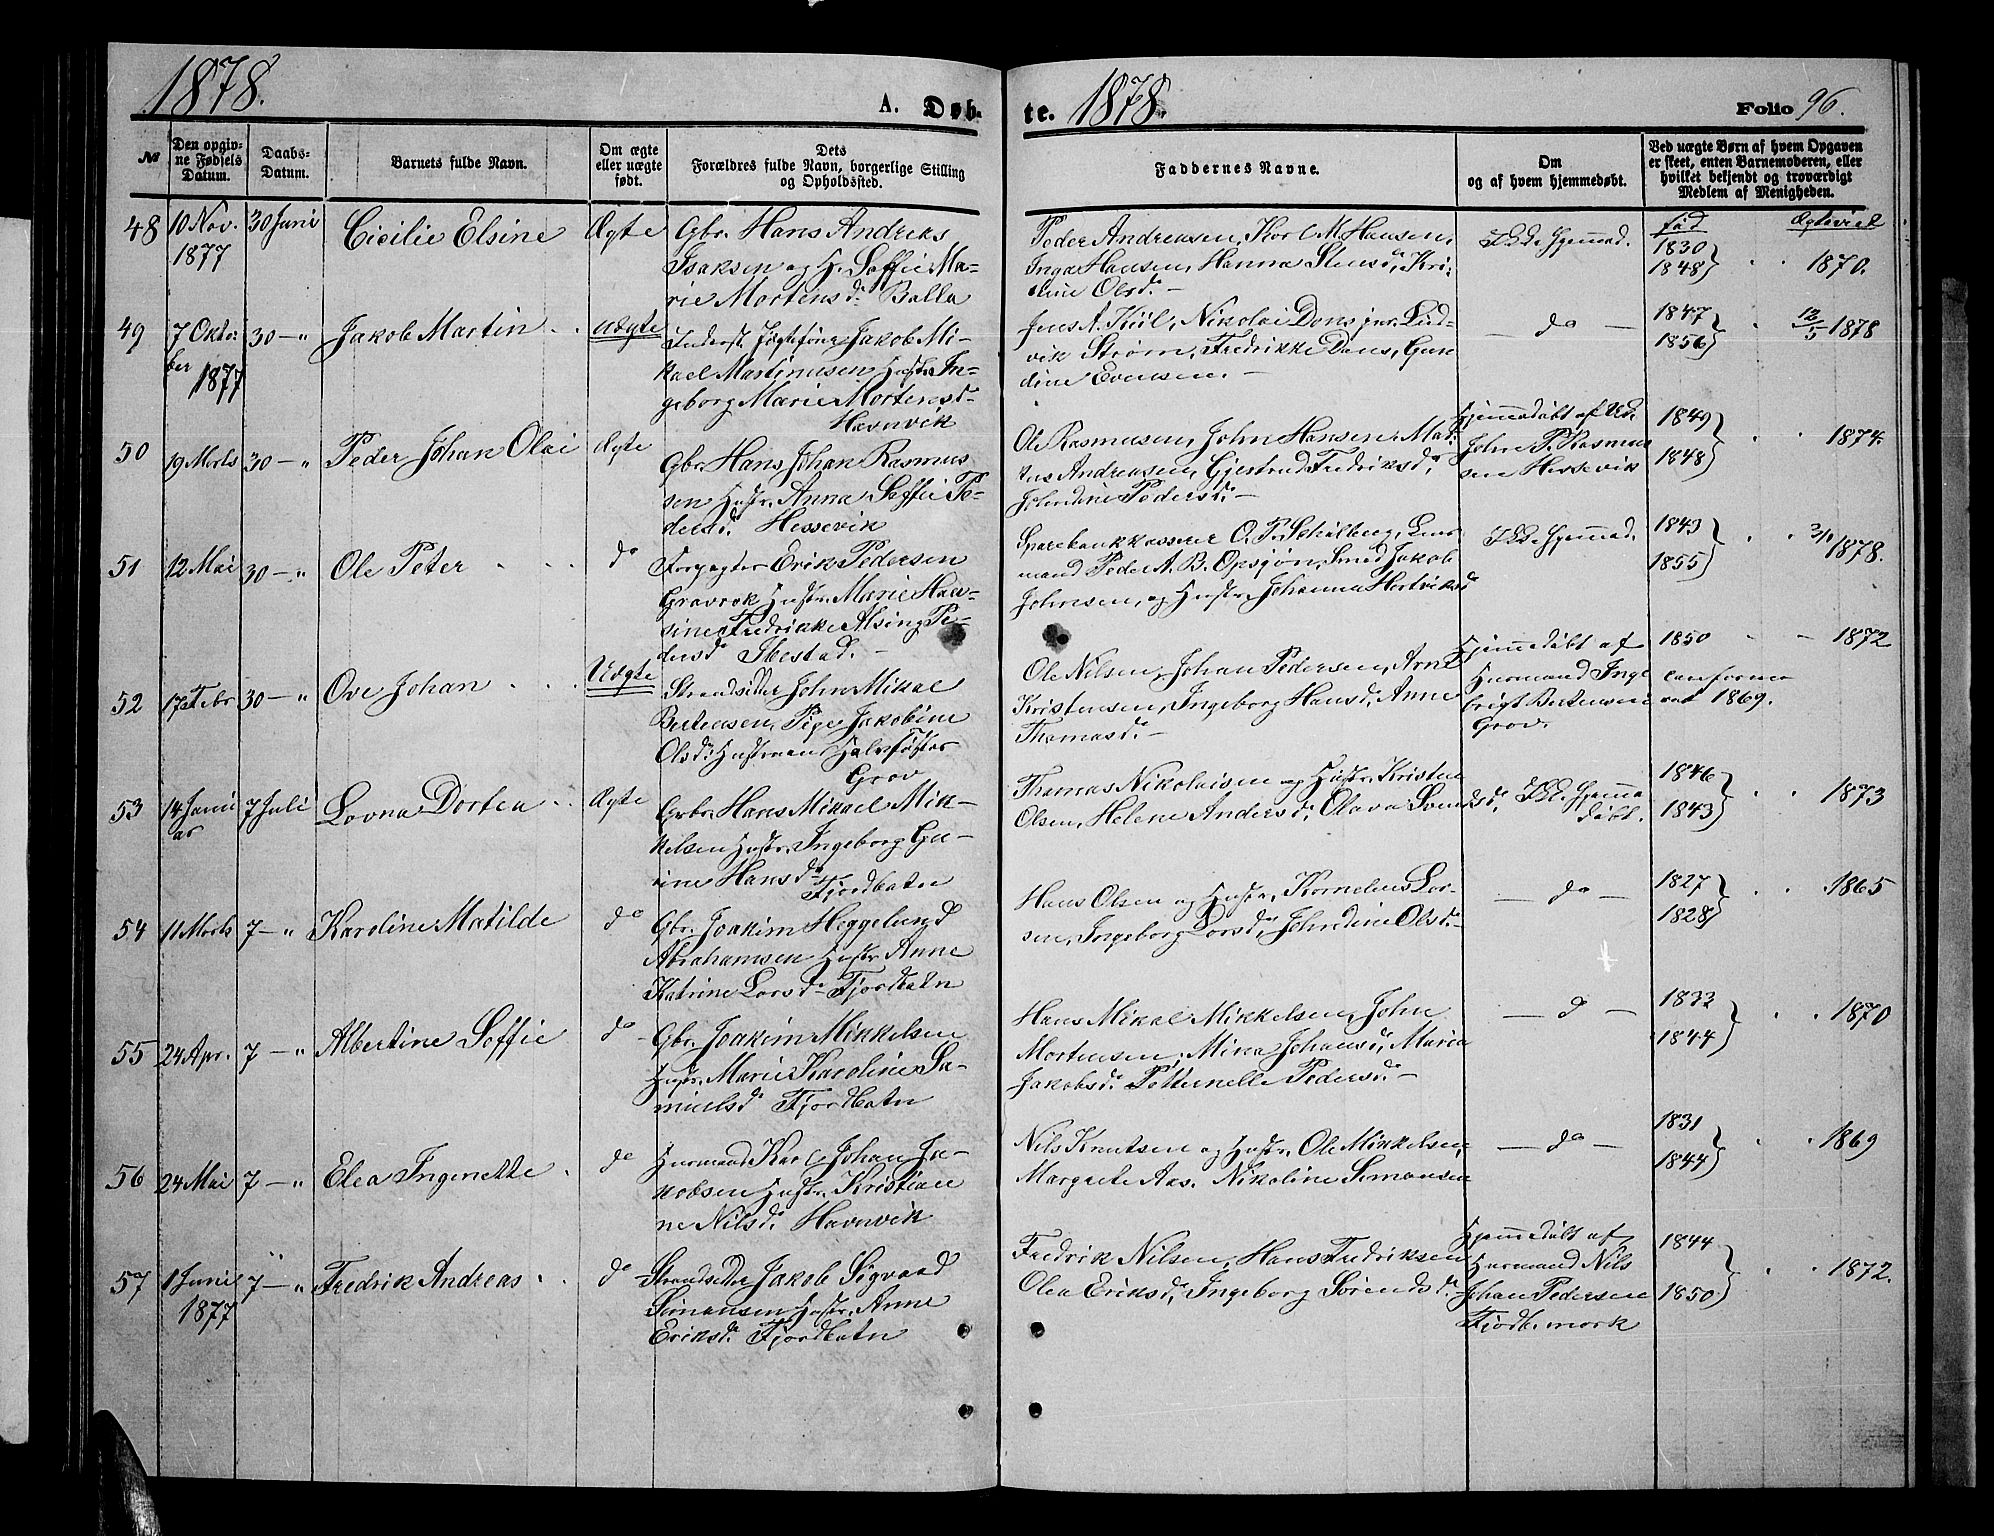 1878.
A. Døb-
te. 1878.
Folio 96.
№
Den opgiv-
ne Fødsels
Datum.
Daabs-
Datum.
Barnets fulde Navn.
Om ægte
eller uægte
født.
Dets
Forældres fulde Navn, borgerlige Stilling
og Opholdssted.
Faddernes Navne.
Om
og af hvem hjemmedøbt.
Ved uægte Børn af hvem Opgaven
er skeet, enten Barnemoderen, eller
hvilket bekjendt og troværdigt
Medlem af Menigheden.
48
10 Nov.
1877
30 Juni
Cicilie Elsine
Ægte
Gbr. Hans Andreas
Isaksen og H. Soffie Ma-
rie Mortensd. Balla
Peder Andreasen, Karl M. Hansen,
Inga Hansen, Hanna Stensd., Kri-
stine Olsd. -
Ikke Hjemmed.
fød
1830
1848
Ægteviet
1870.
49
7 Okto-
ber
1877
30 - "
Jakob Martin
Uægte
Inderst Jægtefører Jakob Mi-
kael Martinusen Hustr. In-
geborg Marie Mortensd.
Havnvik
Jens A. Kiil, Nikolai Dons jnr. Lud-
vik Strøm, Fredrikke Dons, Gun-
dine Evensen. -
- do -
1847
1856
12/5 1878
50
19 Marts
30 - "
Peder Johan Olai
Ægte
Gbr. Hans Johan Rasmus
sen Hustr. Anna Soffie Pe-
dersd. Hessevik
Ole Rasmusen, John Hansen, Mat-
tis Andreasen, Gjertrud Fredriksd.,
Johndine Pedersd. -
Hjemmedøbt af
John P. Rasmus
sen Hessevik
1849
1848
1874.
51
12 Mai
30 - "
Ole Peter
do
Forpagter Erik Pedersen
Gravrok Hustr. Marie Han-
sine Fredrikke Alsing Pe-
dersd. Ibestad. -
Sparebankkasserer O. P. Schølberg, Lens-
mand Peder A. B. Opsjøn, Smed Jakob
Johnsen, og Hustr. Johanna Hertviksd
Ikke Hjemmed.
1843
1855
2/1 1878.
52
17 Febr
30 - "
Ove Johan
Uægte
Strandsidder John Mikal
Bertensen, Pige Jakobine
Olsd.
Grov
Ole Nilsen, Johan Pedersen, Arnt
Kristensen, Ingeborg Hansd., Anne
Thomasd. -
Hjemmedøbt af
Husmand Inge
brigt Bertensen
Grov.
1850
1872
confirme
ret 1869.
53
14 Janu
ar
7 Juli
Lovna Dortea
Ægte
Grbr. Hans Mikael Mik-
kelsen Hustr. Ingeborg Gu-
rine Hansd.
Fjordbotn
Thomas Nikolaisen og Hustr., Kristen
Olsen, Helene Andersd., Olava Svendsd.
Ikke Hjemme
døbt.
1846
1843
1873
54
11 Marts
7 - "
Karoline Matilde
do
Gbr. Joakim Heggelund
Abrahamsen Hustr Anne
Katrine Larsd. Fjordbotn
Hans Olsen og Hustr., Kornelius Lar-
sen, Ingeborg Larsd., Johndine Olsd. -
- do -
1827
1828
1865
55
24 Apr.
7 - "
Albertine Soffie
do
Gbr. Joakim Mikkelsen
Hustr. Marie Karoline Sa-
muelsd. Fjordbotn
Hans Mikal Mikkelsen, John
Mortensen, Mina Johansd., Maria
Jakobsd. Petternelle Pedersd. -
- do -
1833
1844
1870
56
24 Mai
7 - "
Elea Ingenette
do
Husmand Karl Johan Ja-
kobsen Hustr. Kristian
ne Nilsd. Havnvik
Nils Knutsen og Hustr., Ole Mikkelsen,
Margrete Aas. Nikoline Simonsen
- do -
1831
1844
1869
57
1 Juni
1877
7 - "
Fredrik Andreas
do
Strandsidder Jakob Sigvard
Simonsen Hustr. Anne
Eriksd. Fjordbotn
Fredrik Nilsen, Hans Fredriksen
Olea Eriksd., Ingeborg Sørensd.
Hjemmedøbt af
Husmand Nils
Johan Pedersen
Fjordb.mark
1844
1850
1872.